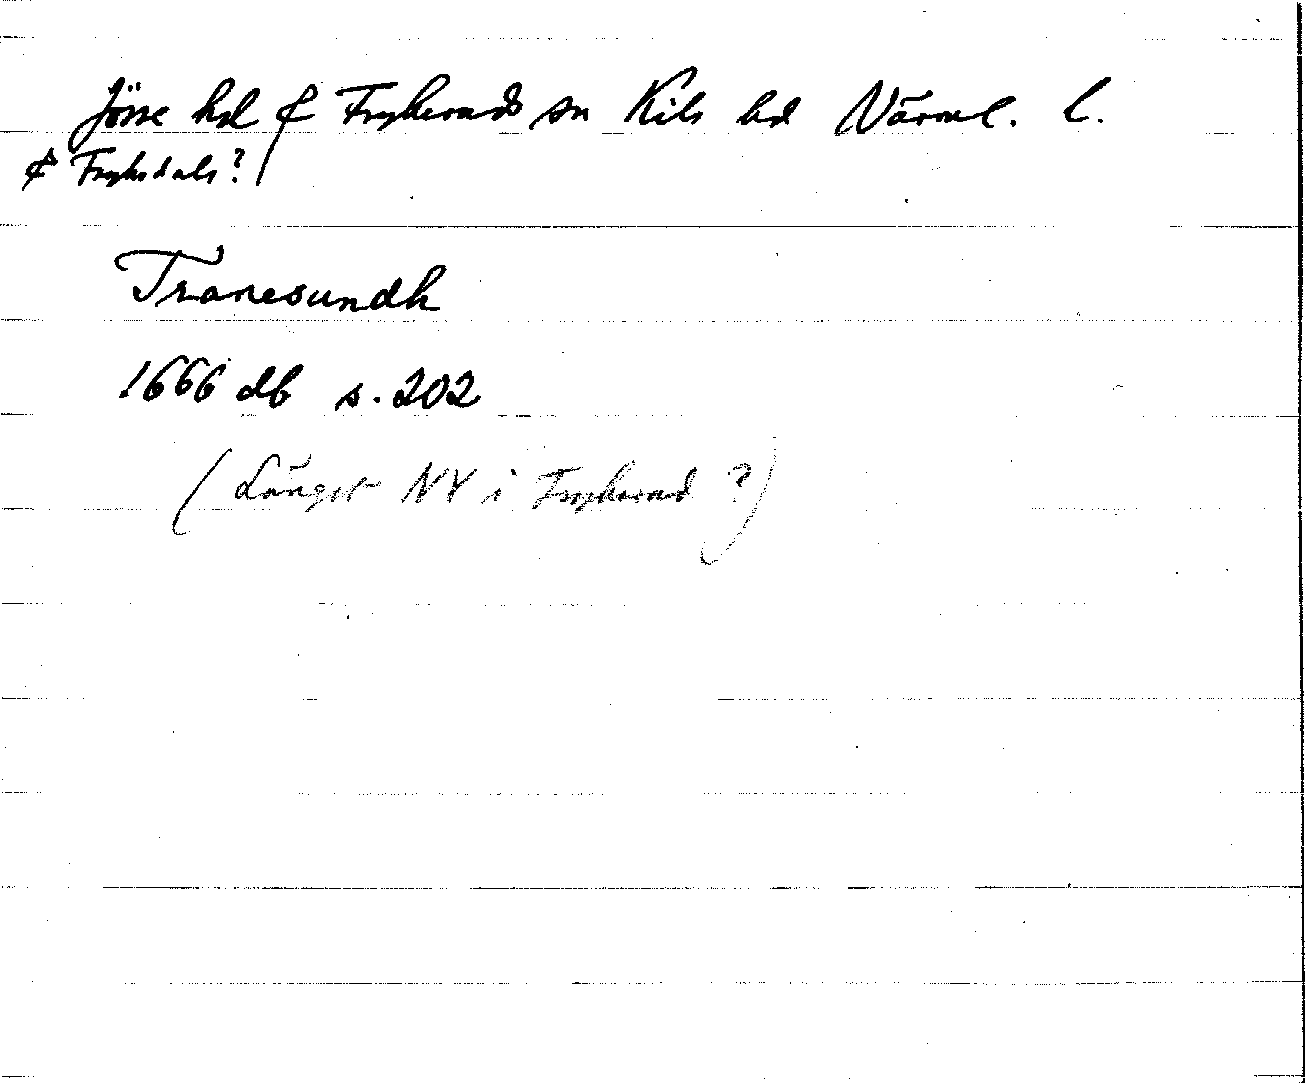 Jösse hd & Frykeruds sn Kils hd Värml. l.
& Fryksdals?
Tranesundh
1666 db s. 202
(Längst NV i Frykerud?)